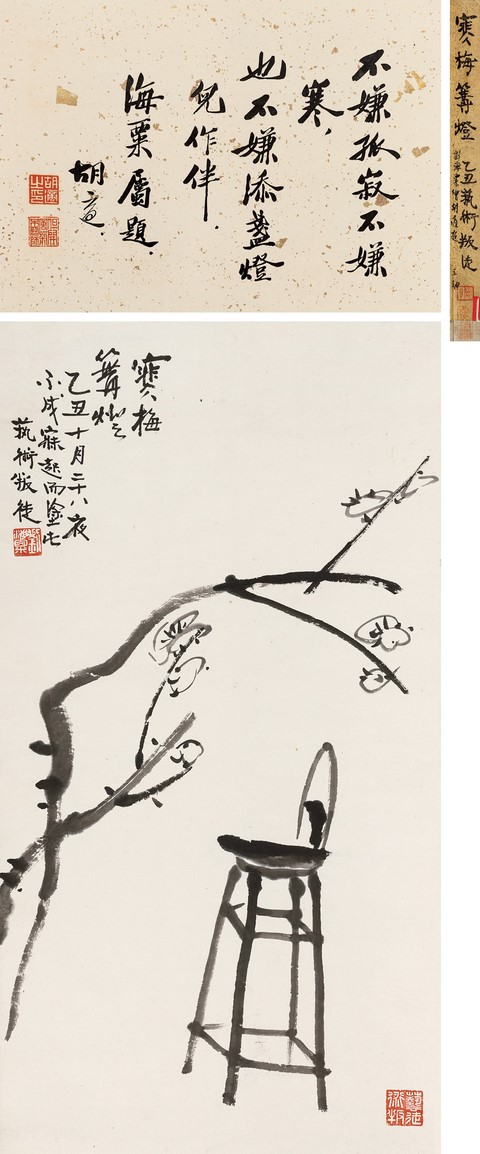 不嫌孤寂不嫌
寒，
也不嫌添盏燈
兒作伴．
海粟屬題．
胡適．
寒梅
篝燈
乙丑十月二十八夜
不成寐起而塗此
藝術叛徒
寒梅篝燈
乙丑藝術叛徒